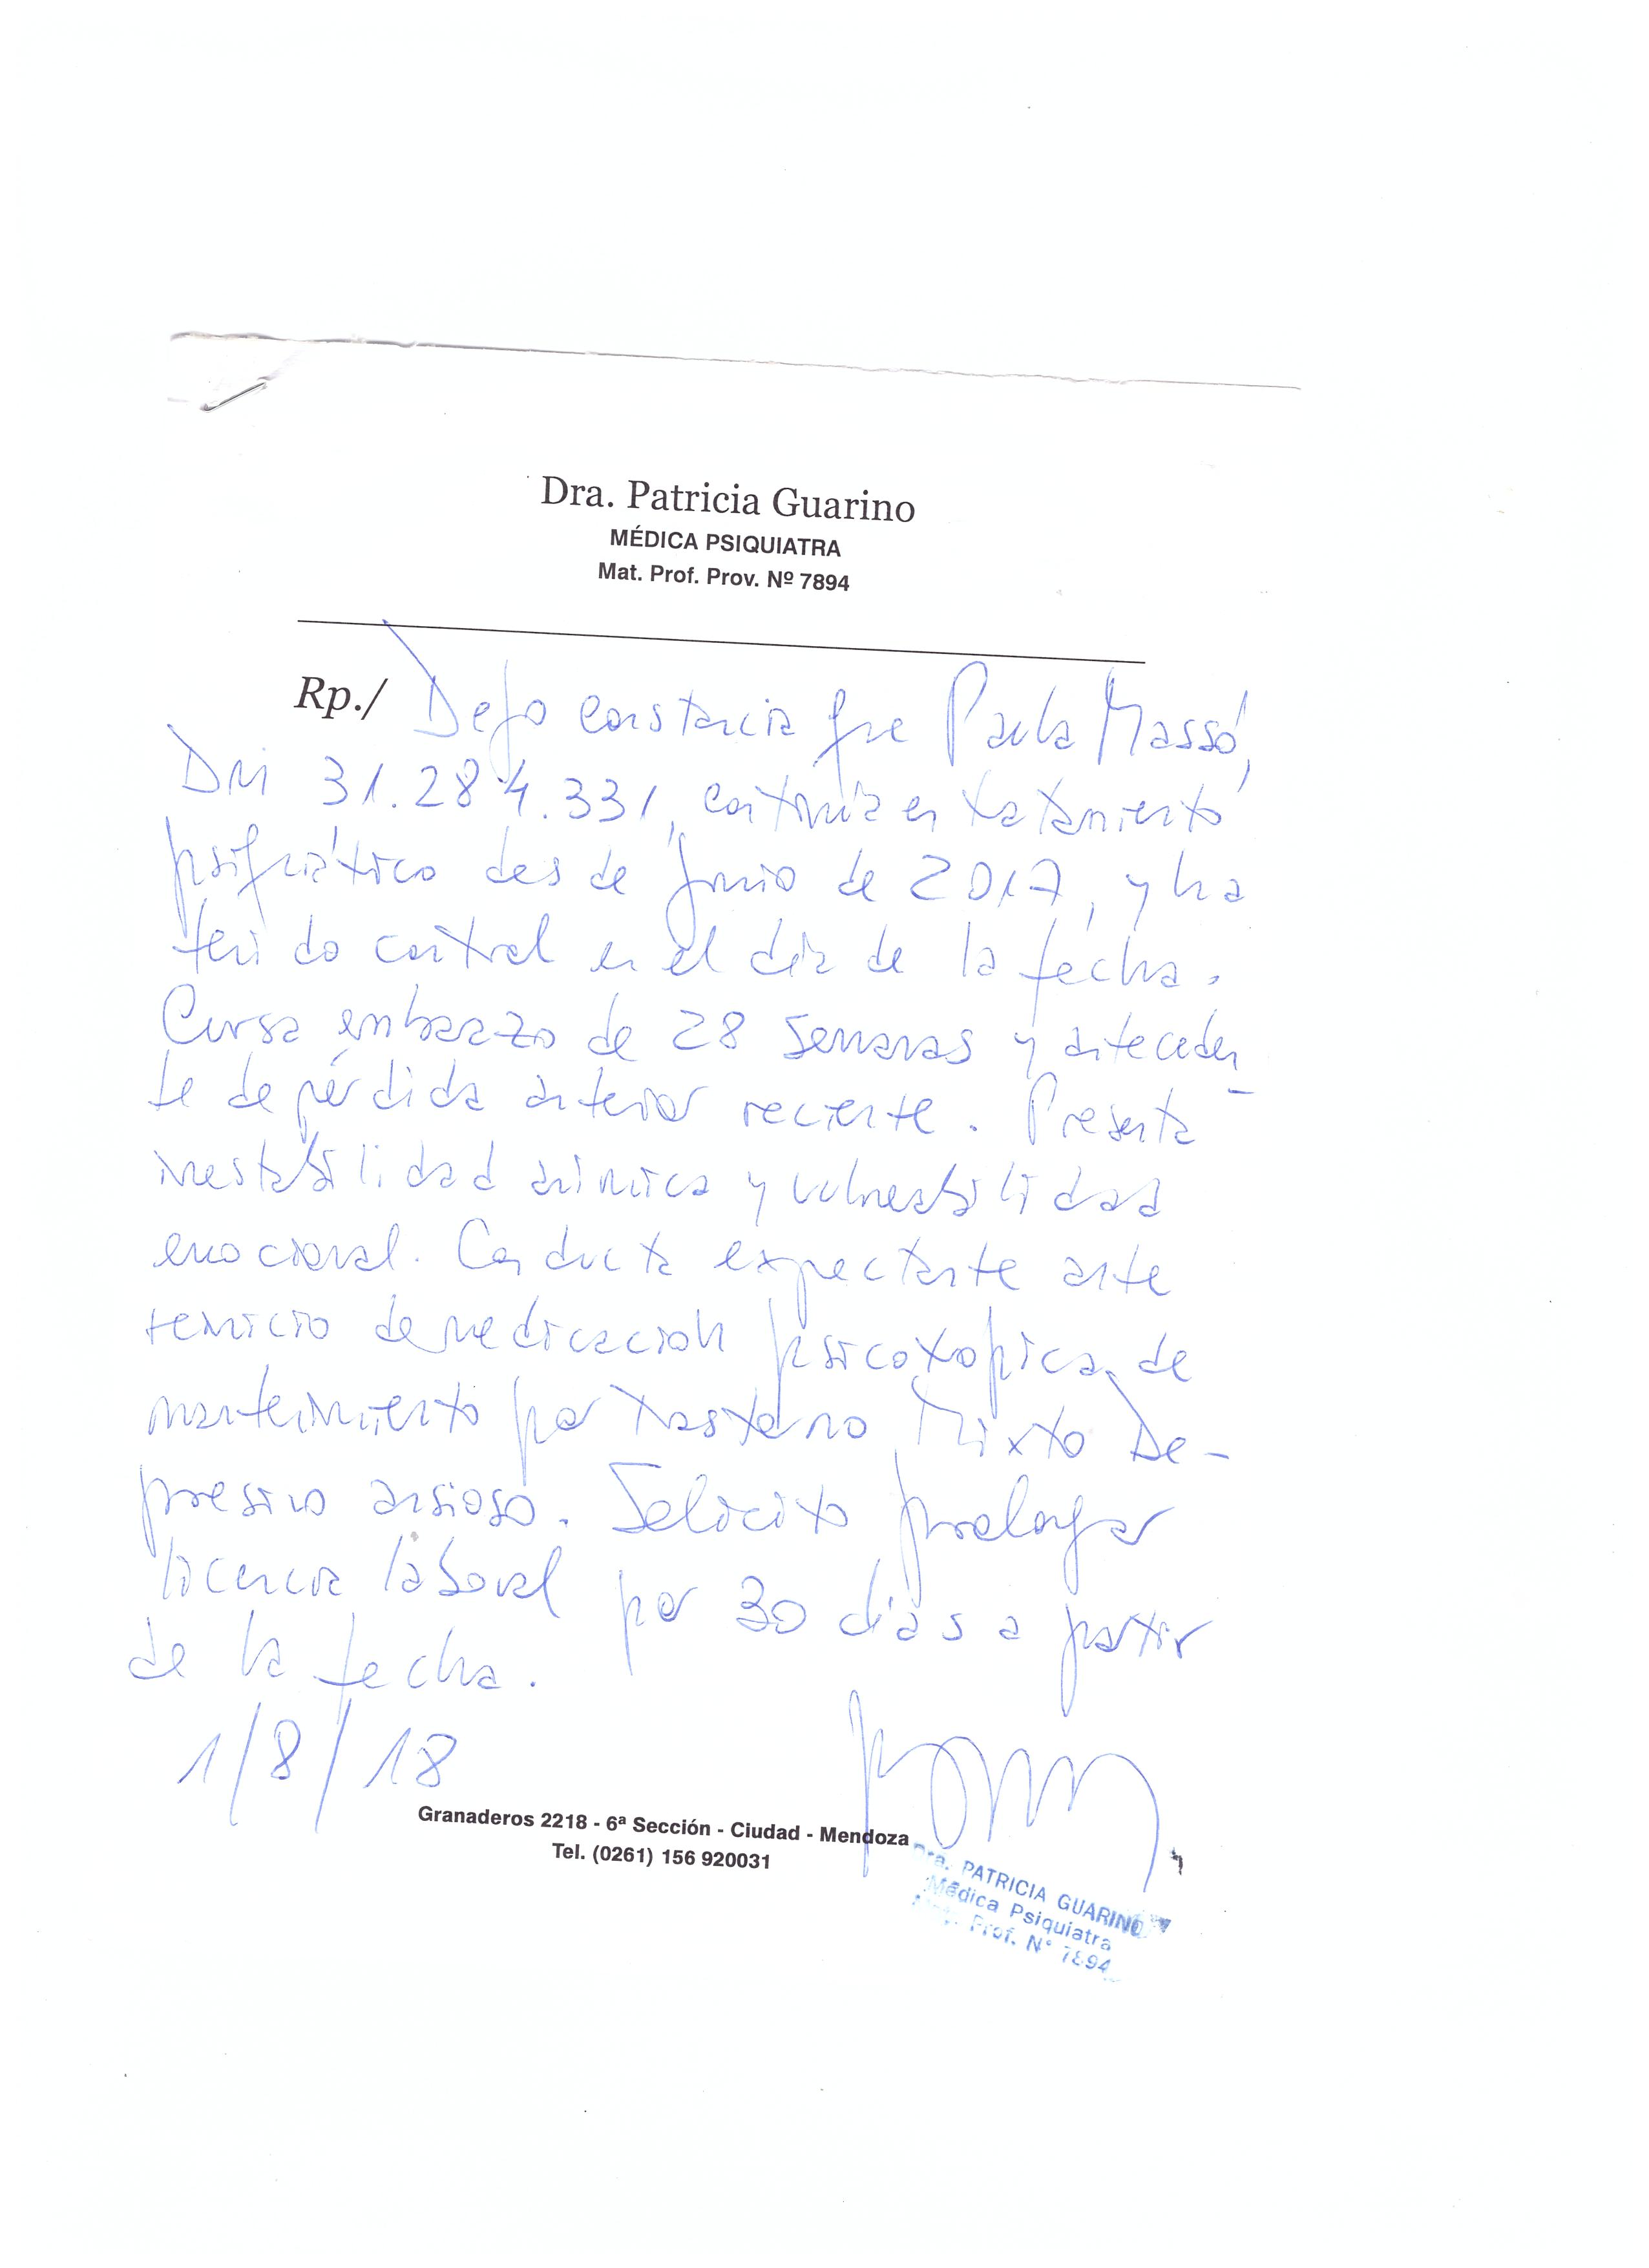 Dra. Patricia Guarino
MÉDICA PSIQUIATRA
Mat. Prof. Prov. Nº 7894
Rp./ Dejo constancia que Paula Massó,
DNI 31.284.331, continúa en tratamiento
psiquiátrico desde Junio de 2017, y ha
tenido control en el día de la fecha.
Cursa embarazo de 28 semanas y anteceden
te de pérdida anterior reciente. Presenta
inestabilidad anímica y vulnerabilidad
emocional. Conducta expectante ante
reinicio de medicación psicotrópica de
mantenimiento por Trastorno Mixto De-
presivo ansioso. Solicito prolongar
licencia laboral por 30 días a partir
de la fecha.
1/8/18
Granaderos 2218 - 6ª Sección - Ciudad - Mendoza
Tel. (0261) 156 920031
Dra. PATRICIA GUARINO
Médica Psiquiatra
Mat. Prof. N° 7894